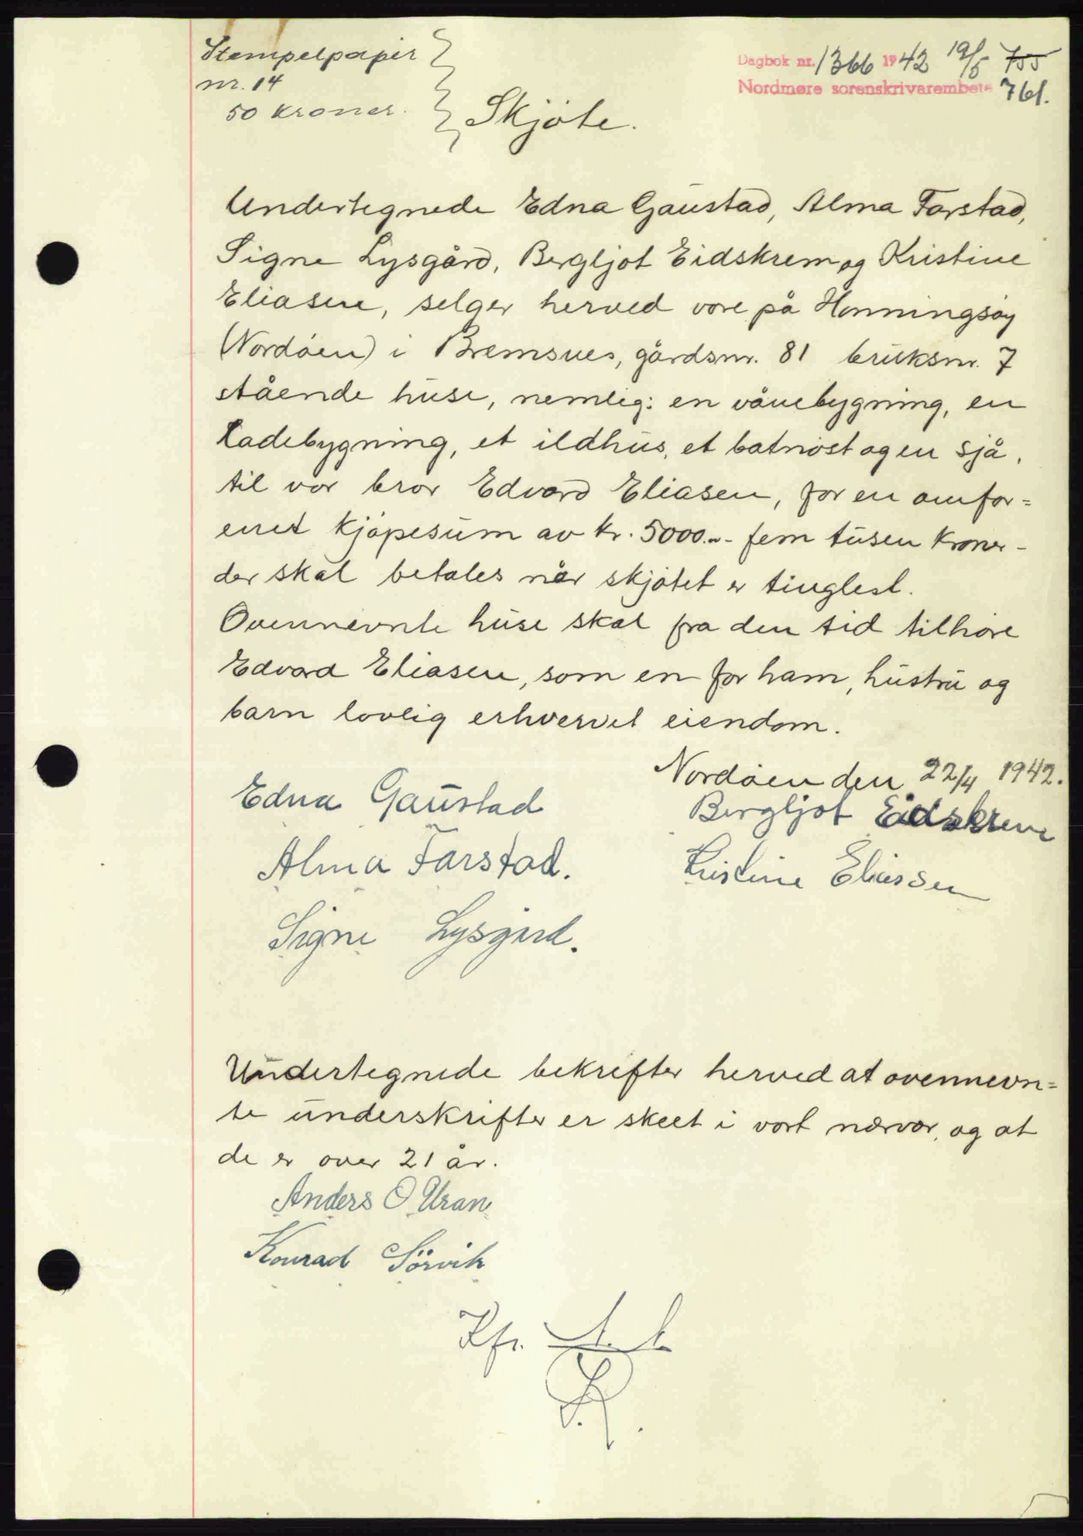 Stempelpapir
nr. 14
50 kroner.
Dagbok nr. 1366 1942 19/5 755
Nordmøre sorenskrivarembete 761.
Skjøte.
Undertegnede Edna Gaustad, Alma Farstad,
Signe Lysgård, Bergljot Eidskrem og Kristine
Eliasen, selger herved vore på Honningsøy
(Nordøen) i Bremsnes, gårdsnr. 81 bruksnr. 7
stående huse, nemlig: en vånebygning, en
ladebygning, et ildhus, et batnøst og en sjå,
til vor bror Edvard Eliasen, for en omfor=
enet kjøpesum av kr. 5000.-- fem tusen kroner -
der skal betales når skjøtet er tinglest.
Ovennevnte huse skal fra den tid tilhøre
Edvard Eliasen, som en for ham, hustru og
barn lovlig erhvervet eiendom.
Nordøen den 22/4 1942.
Edna Gaustad
Bergljot Eidskrem
Alma Farstad.
Kristine Eliassen
Signe Lysgård.
Undertegnede bekrefter herved at ovennevn=
te underskrifter er skeet i vort nærvær, og at
de er over 21 år.
Anders O Uran
Konrad Sörvik
Kfr.